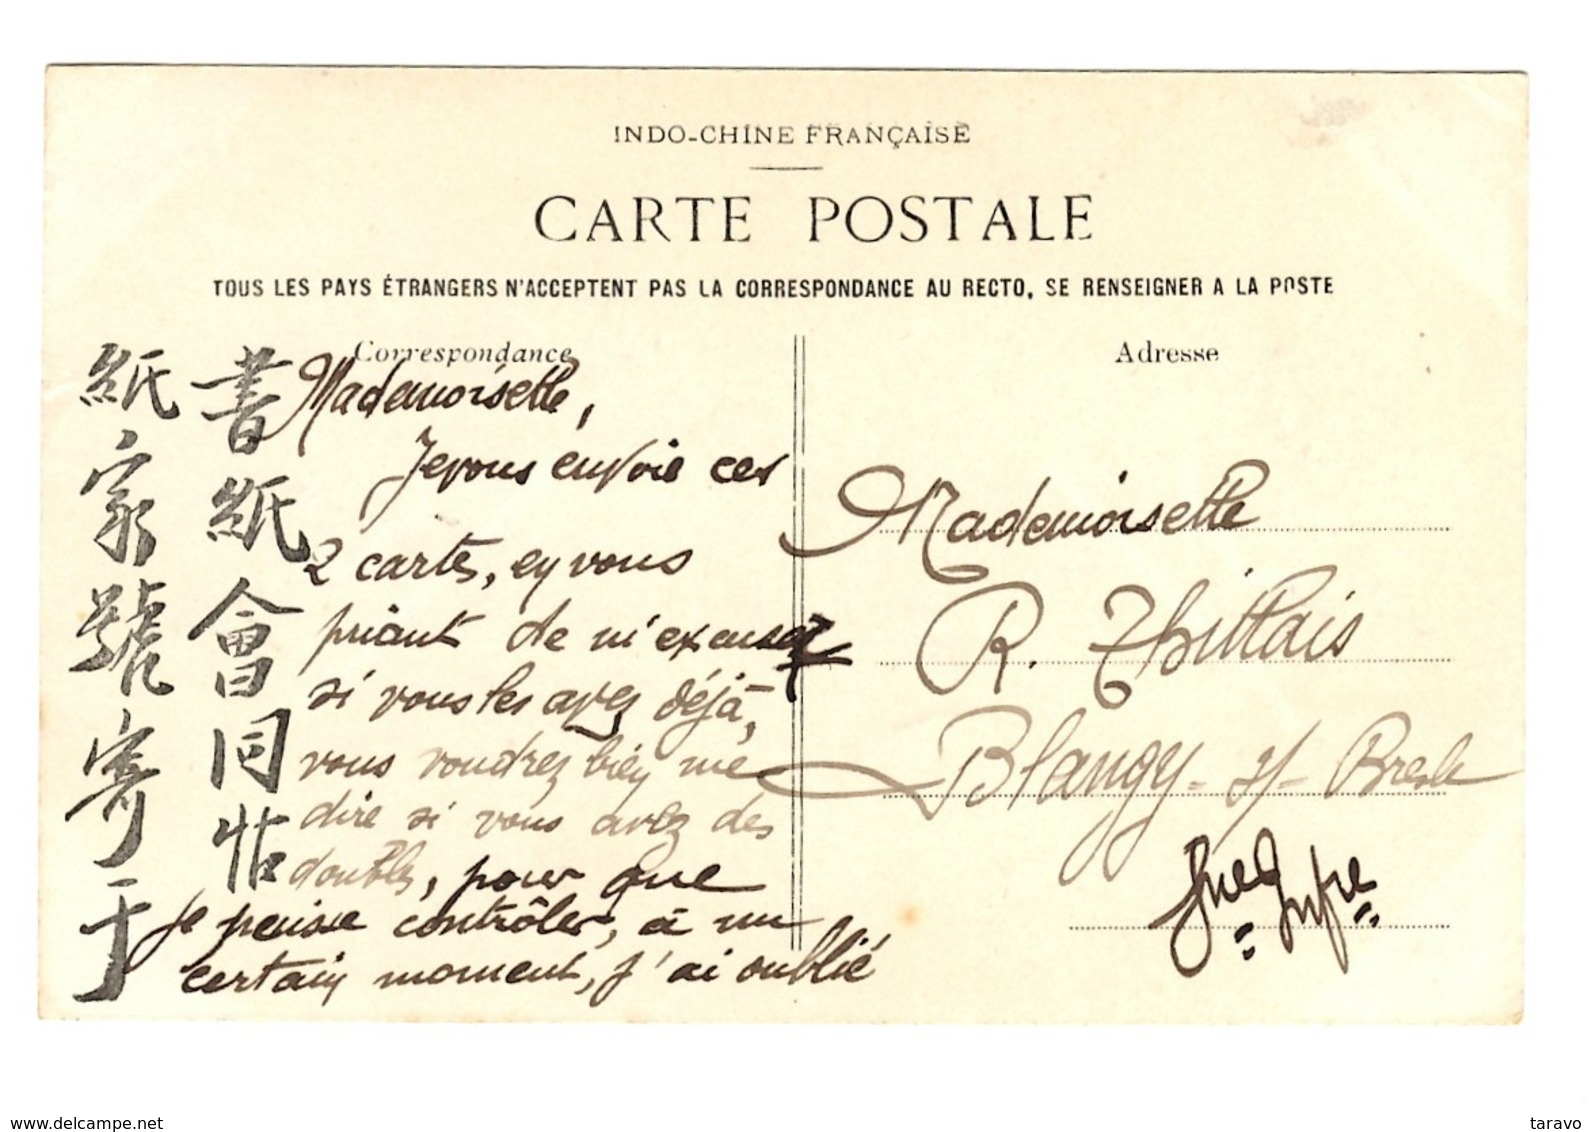 INDO-CHINE FRANÇAISE
CARTE POSTALE
TOUS LES PAYS ÉTRANGERS N'ACCEPTENT PAS LA CORRESPONDANCE AU RECTO, SE RENSEIGNER A LA POSTE
Correspondance
Mademoiselle,
Je vous envoie ces
2 cartes, en vous
priant de m'excuser
si vous les avez déjà,
vous voudrez bien me
dire si vous avez des
doubles, pour que
je puisse contrôler, à un
certain moment, j'ai oublié
書紙會同
紙家號寄于
Adresse
Mademoiselle
R. Thillais
Blangy-s/-Bresle
Sne Infre
www.delcampe.net
taravo